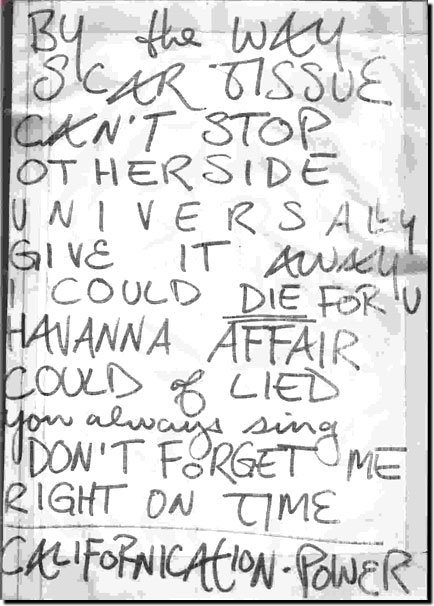 By the WAY
SCAR TISSUE
CAN'T STOP
OTHERSIDE
UNIVERSALLY
GIVE IT AWAY
I COULD DIE FOR U
HAVANNA AFFAIR
COULD of LIED
you always sing
DON'T FORGET ME
RIGHT ON TIME
CALIFORNICATION · POWER